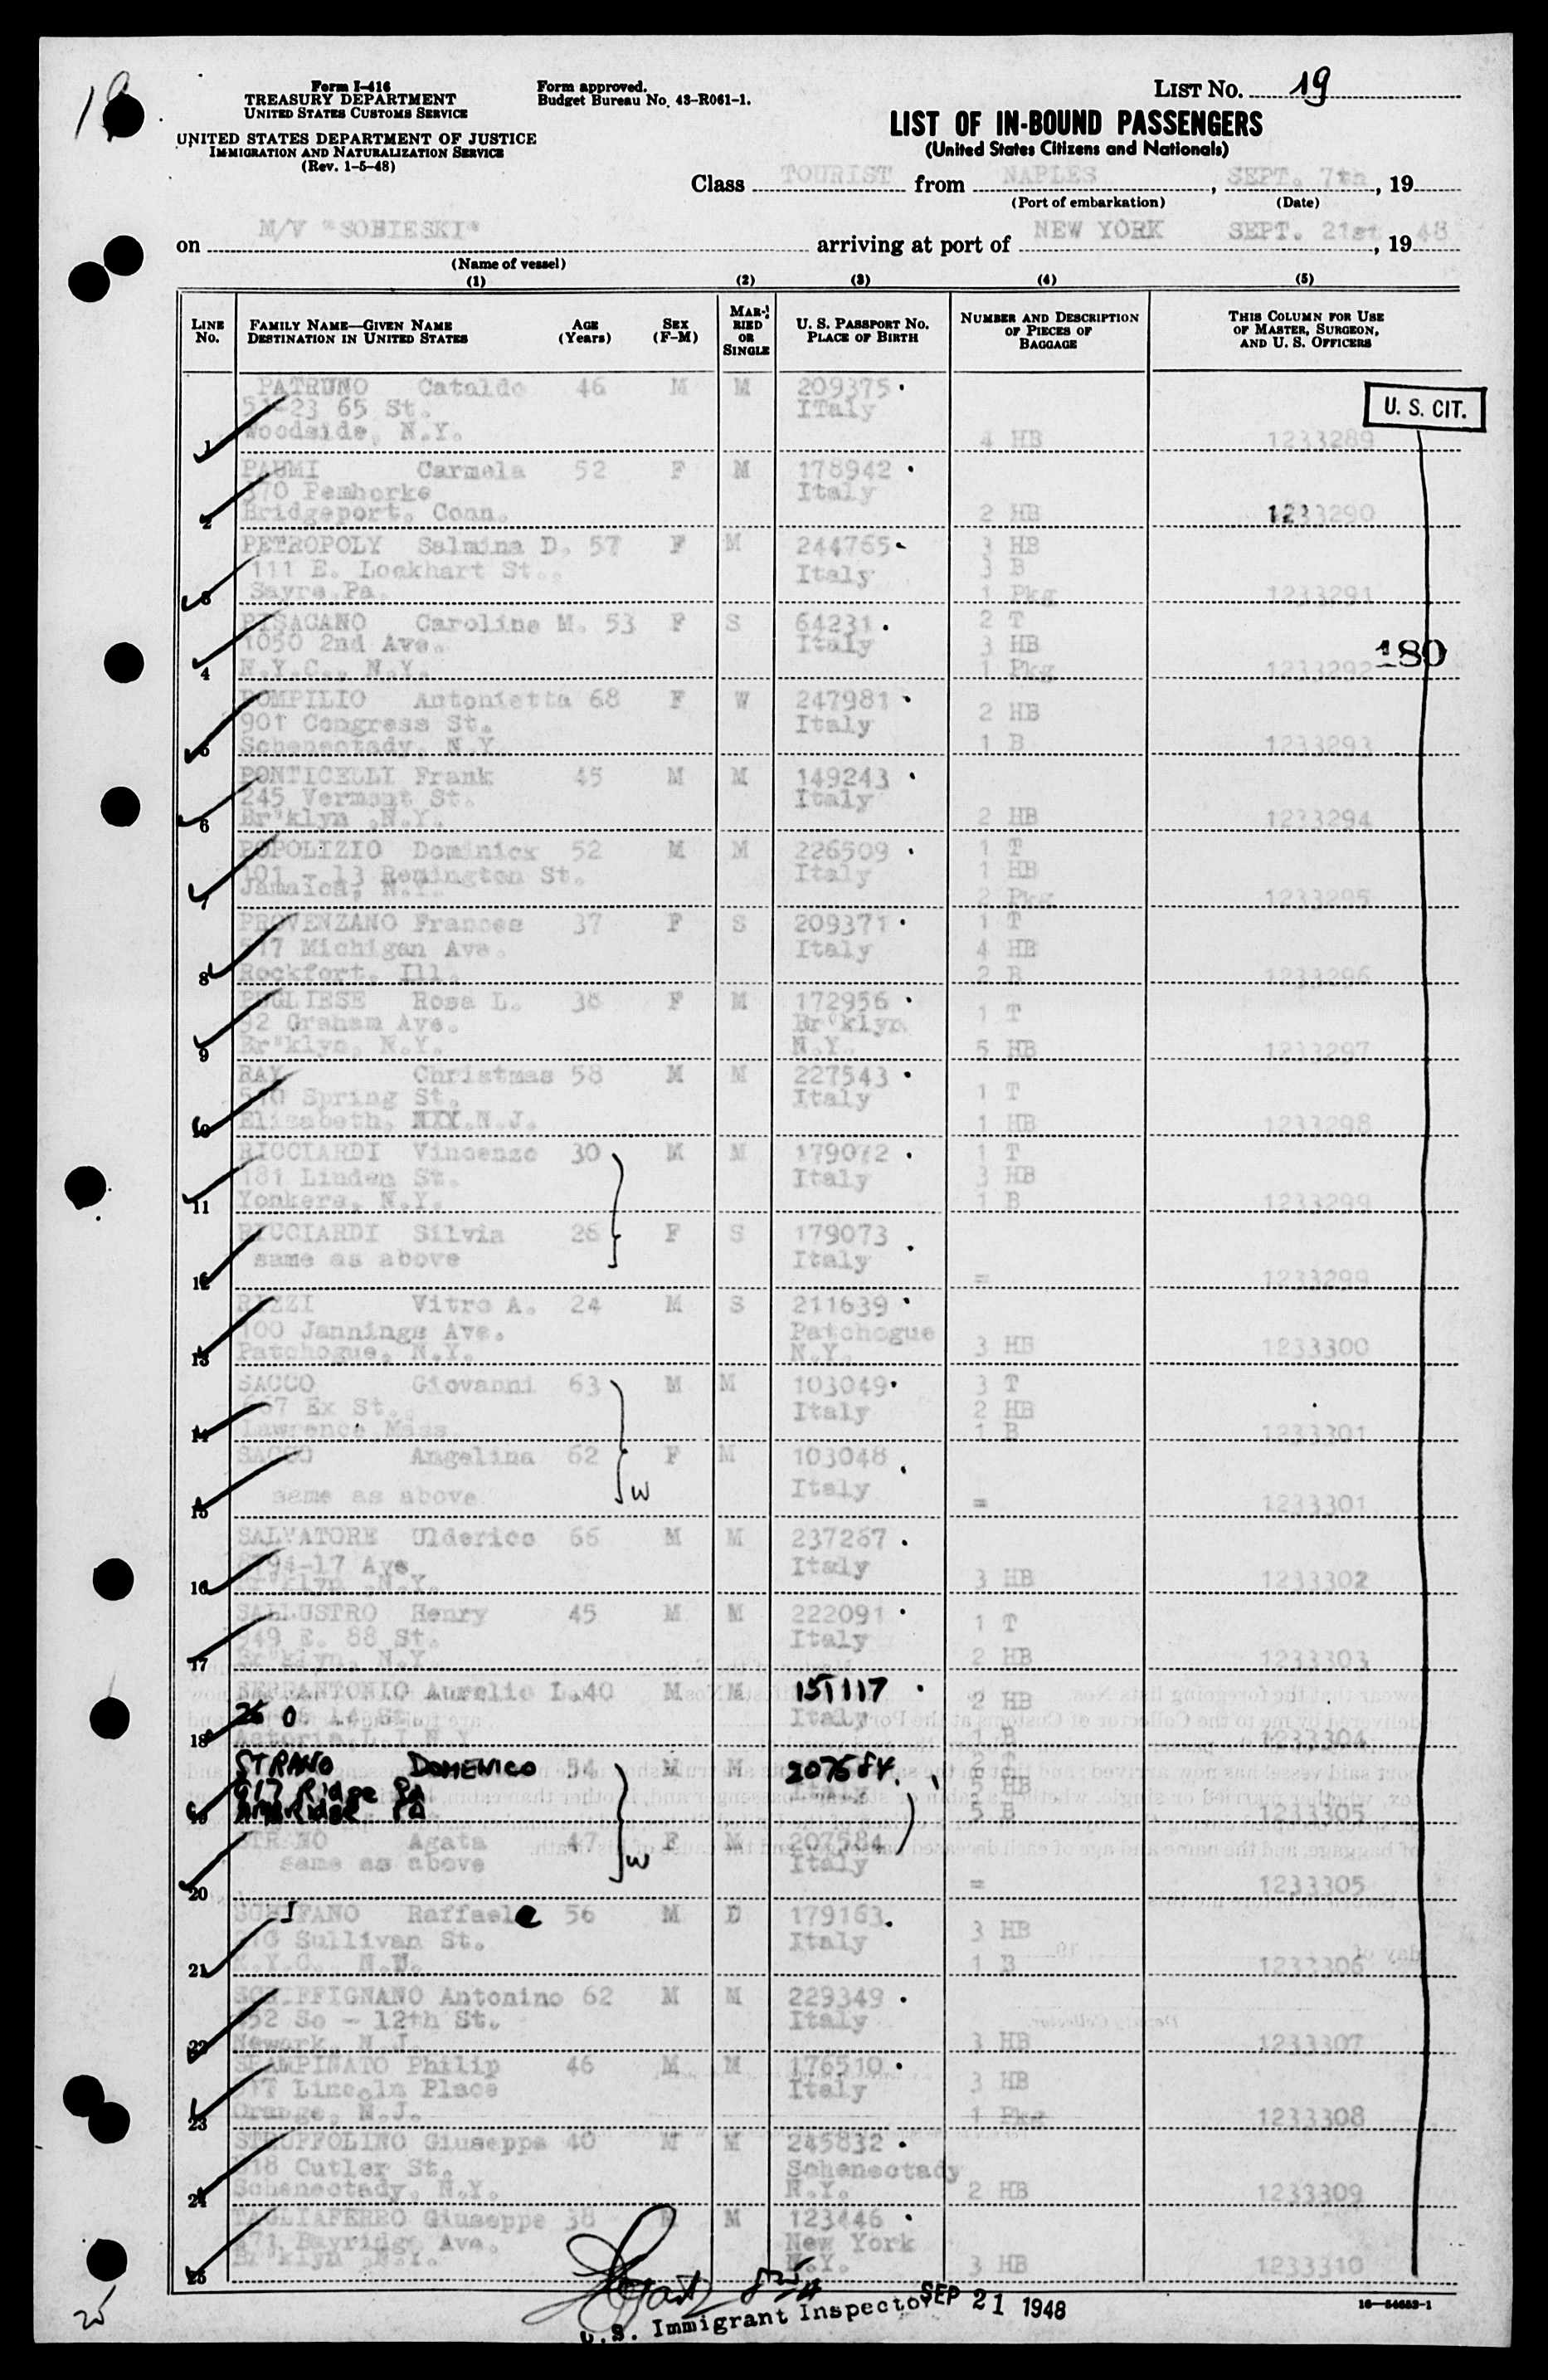 19
Form I-416
TREASURY DEPARTMENT
UNITED STATES CUSTOMS SERVICE
UNITED STATES DEPARTMENT OF JUSTICE
IMMIGRATION AND NATURALIZATION SERVICE
(Rev. 1-5-48)
Form approved.
Budget Bureau No. 43-R061-1.
LIST NO. 19
LIST OF IN-BOUND PASSENGERS
(United States Citizens and Nationals)
Class TOURIST from NAPLES, SEPT. 7th, 19
(Port of embarkation) (Date)
on M/V "SOBIESKI" arriving at port of NEW YORK SEPT. 21st, 19 48
(Name of vessel)
(1) (2) (3) (4) (5)
LINE NO. FAMILY NAME—GIVEN NAME DESTINATION IN UNITED STATES AGE (Years) SEX (F-M) MARRIED OR SINGLE U. S. PASSPORT NO. PLACE OF BIRTH NUMBER AND DESCRIPTION OF PIECES OF BAGGAGE THIS COLUMN FOR USE OF MASTER, SURGEON, AND U. S. OFFICERS
PATRUNO Cataldo 46 M M 209375
65 St. ITaly
U. S. CIT.
1 Woodside, N.Y. 4 HB 1233289
Carmela 52 F M 178942
Pemborke Italy
2 Bridgeport, Conn. 2 HB 1233290
PETROPOLY Salmina D. 57 F M 244765 3 HB
111 E. Lockhart St. Italy 3 B
3 Sayre Pa. 1 Pkg 1233291
PISACANO Caroline M. 53 F S 64231 2 T
1050 2nd Ave. Italy 3 HB
180
4 N.Y.C., N.Y. 1 Pkg 1233292
POMPILIO Antonietta 68 F W 247981
901 Congress St. Italy 2 HB
5 Schenectady, N.Y. 1 B 1233293
PONTICELLI Frank 45 M M 149243
245 Vermont St. Italy
6 Br'klyn ,N.Y. 2 HB 1233294
POPOLIZIO Dominick 52 M M 226509 1 T
101 - 13 Remington St. Italy 1 HB
7 Jamaica, N.Y. 2 Pkg 1233295
PROVENZANO Frances 37 F S 209371 1 T
Michigan Ave. Italy 4 HB
8 Rockfort, Ill. 2 B 1233296
PUGLIESE Rosa L. 38 F M 172956
92 Graham Ave. Br'klyn 1 T
9 Br'klyn, N.Y. N.Y. 5 HB 1233297
RAY Christmas 58 M M 227543
Spring St. Italy 1 T
10 Elizabeth, NXX.N.J. 1 HB 1233298
RICCIARDI Vincenzo 30 M M 179072 1 T
181 Linden St. Italy 3 HB
11 Yonkers, N.Y. 1 B 1233299
RICCIARDI Silvia 26 F S 179073
same as above Italy
12 = 1233299
RIZZI Vitro A. 24 M S 211639
100 Jannings Ave. Patchogue
13 Patchogue, N.Y. N.Y. 3 HB 1233300
SACCO Giovanni 63 M M 103049 3 T
Ex St. Italy 2 HB
14 Lawrence Mass 1 B 1233301
SACCO Angelina 62 F M 103048
15 same as above W Italy = 1233301
SALVATORE Ulderico 66 M M 237267
17 Ave Italy
16 Br'klyn ,N.Y. 3 HB 1233302
SALLUSTRO Henry 45 M M 222091 1 T
E. 88 St. Italy
17 Br'klyn, N.Y. 2 HB 1233303
SERRANTONIO Aurelio L.40 M M 151117 2 HB
14 St Italy
18 Astoria,L.I.N.Y 1 B 1233304
STRANO DOMENICO 54 M M 207584 2 T
917 Ridge Pa Italy 5 HB
19 Ambridge PA 5 B 1233305
STRANO Agata 47 F M 207584
same as above W Italy
20 = 1233305
Raffaele 56 M D 179163
Sullivan St. Italy 3 HB
21 N.Y.C. N.Y. 1 B 1233306
SCHIFFIGNANO Antonino 62 M M 229349
So - 12th St. Italy
22 Newark, N.J. 3 HB 1233307
SPAMPINATO Philip 46 M M 176510
Lincoln Place Italy 3 HB
23 Orange, N.J. 1 Pkg 1233308
STRUFFOLINO Giuseppe 40 M M 245832
Cutler St. Schenectady
24 Schenectady, N.Y. N.Y. 2 HB 1233309
TAGLIAFERRO Giuseppe 38 M M 123446
Bayridge Ave. New York
25 Br'klyn ,N.Y. N.Y. 3 HB 1233310
U.S. Immigrant Inspector SEP 21 1948
16—54653-1